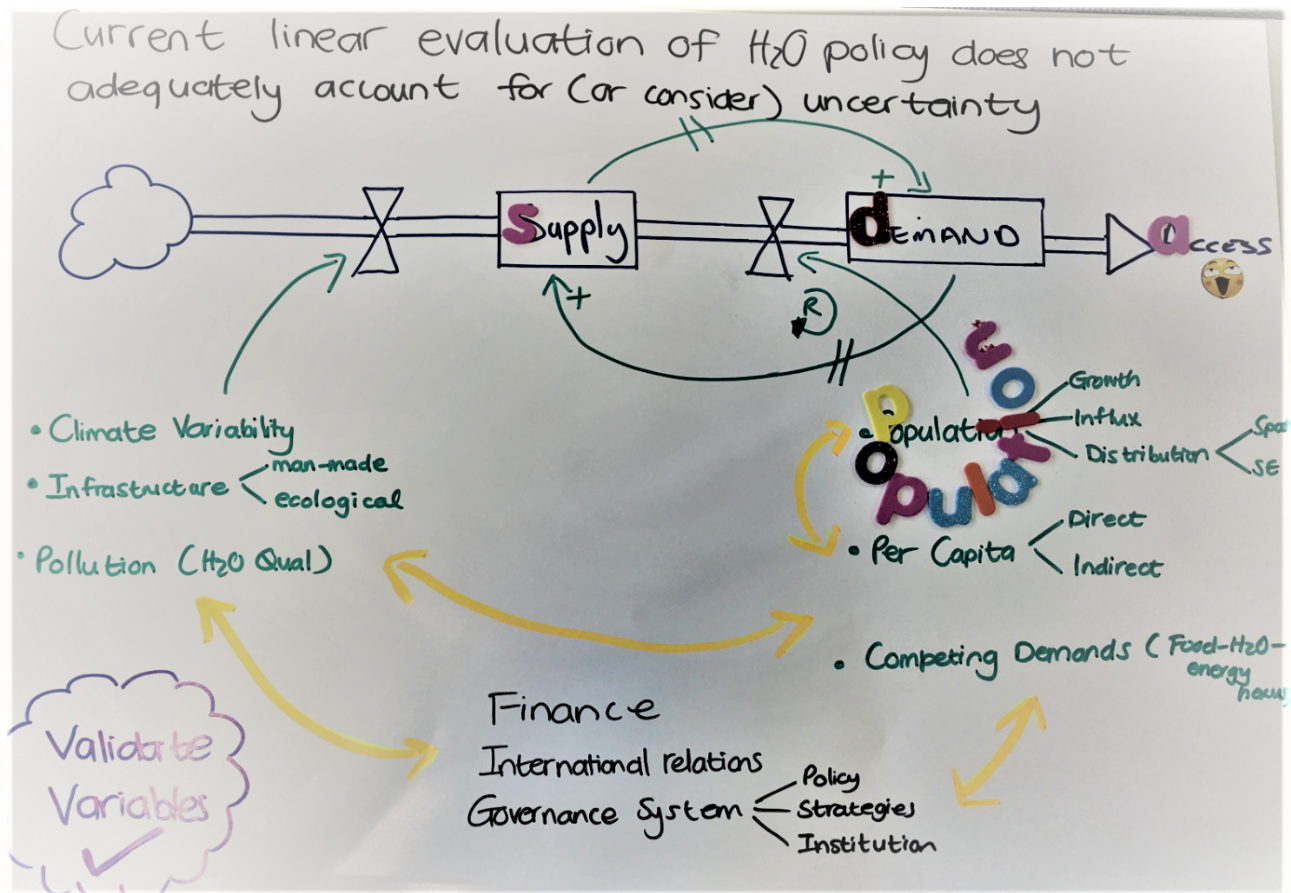 Current linear evaluation of H2O policy does not
adequately account for (or consider) uncertainty
Supply
dEMAND
access
+
+
R
• Climate Variability
• Infrastructure
man-made
ecological
• Pollution (H2O Qual)
population
• Population
Growth
Influx
Distribution
SE
• Per Capita
Direct
Indirect
• Competing Demands (Food-H2O-
energy
Finance
International relations
Governance System
Policy
Strategies
Institution
Validate
Variables